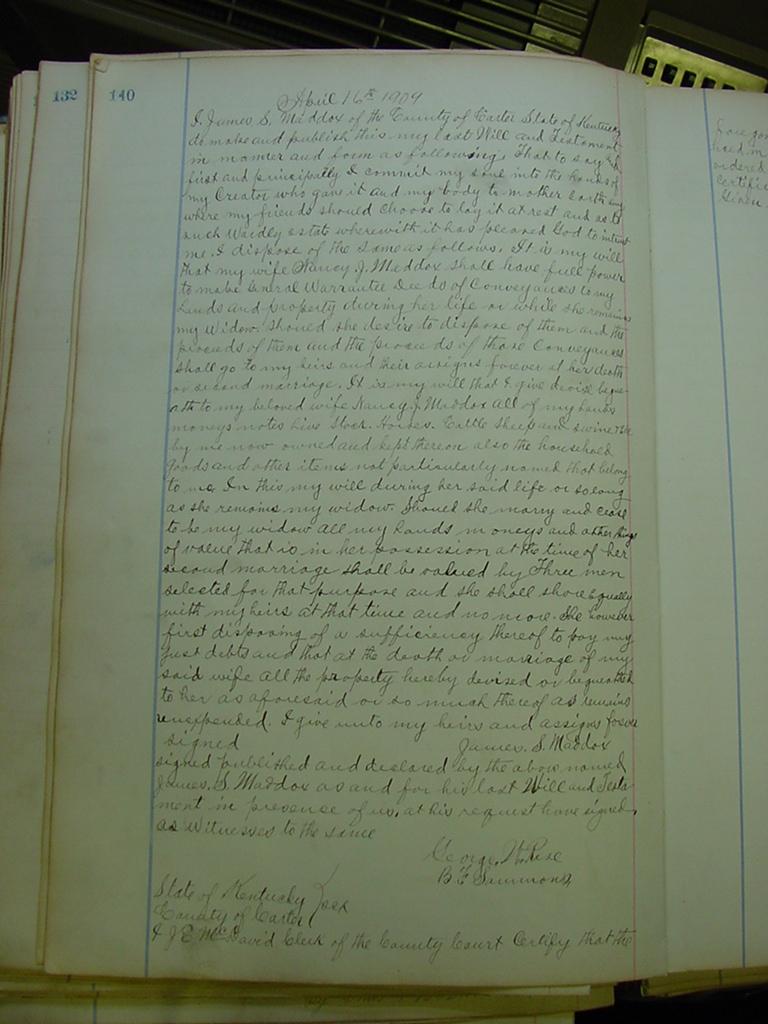 132 140
April 16th 1909
I, James S. Maddox of the County of Carter State of Kentucky
do make and publish this my last Will and Testament
in manner and form as following. That to say
first and principally I commit my soul into the hands of
my Creator who gave it and my body to mother earth any
where my friends should choose to lay it at rest and as to
such Wordly estate wherewith it has pleased God to intrust
me. I dispose of the same as follows. It is my will
that my wife Nancy J. Maddox shall have full power
to make General Warrantee Deeds of Conveyances to my
Lands and property during her life or while she remains
my Widow. Should she desire to dispose of them and the
proceeds of them and the proceeds of those Conveyances
shall go to my heirs and their assigns forever at her death
or second marriage. It is my will that I give devise beque
ath to my beloved wife Nancy J. Maddox all of my lands
moneys notes live stock. Horses. Cattle sheep and swine
by me now owned and kept thereon also the household
goods and other items not particularly named that belong
to me. In this my will during her said life or so long
as she remains my widow. Should she marry and cease
to be my widow all my Lands moneys and other things
of value that is in her possession at the time of her
second marriage shall be valued by Three men
selected for that purpose and she shall share equally
with my heirs at that time and no more. She however
first disposing of a sufficiency thereof to pay my
just debts and that at the death or marriage of my
said wife all the property hereby devised or bequeathed
to her as aforesaid or so much thereof as remains
unexpended. I give unto my heirs and assigns forever
signed James. S. Maddox
signed published and declared by the above named
James. S. Maddox as and for his last Will and Testa
ment in presence of us, at his request have signed
as Witnesses to the same
George W.
B F Sammons
State of Kentucky
County of Carter
I J E McDavid Clerk of the County Court Certify that the
fore going
ordered
Given